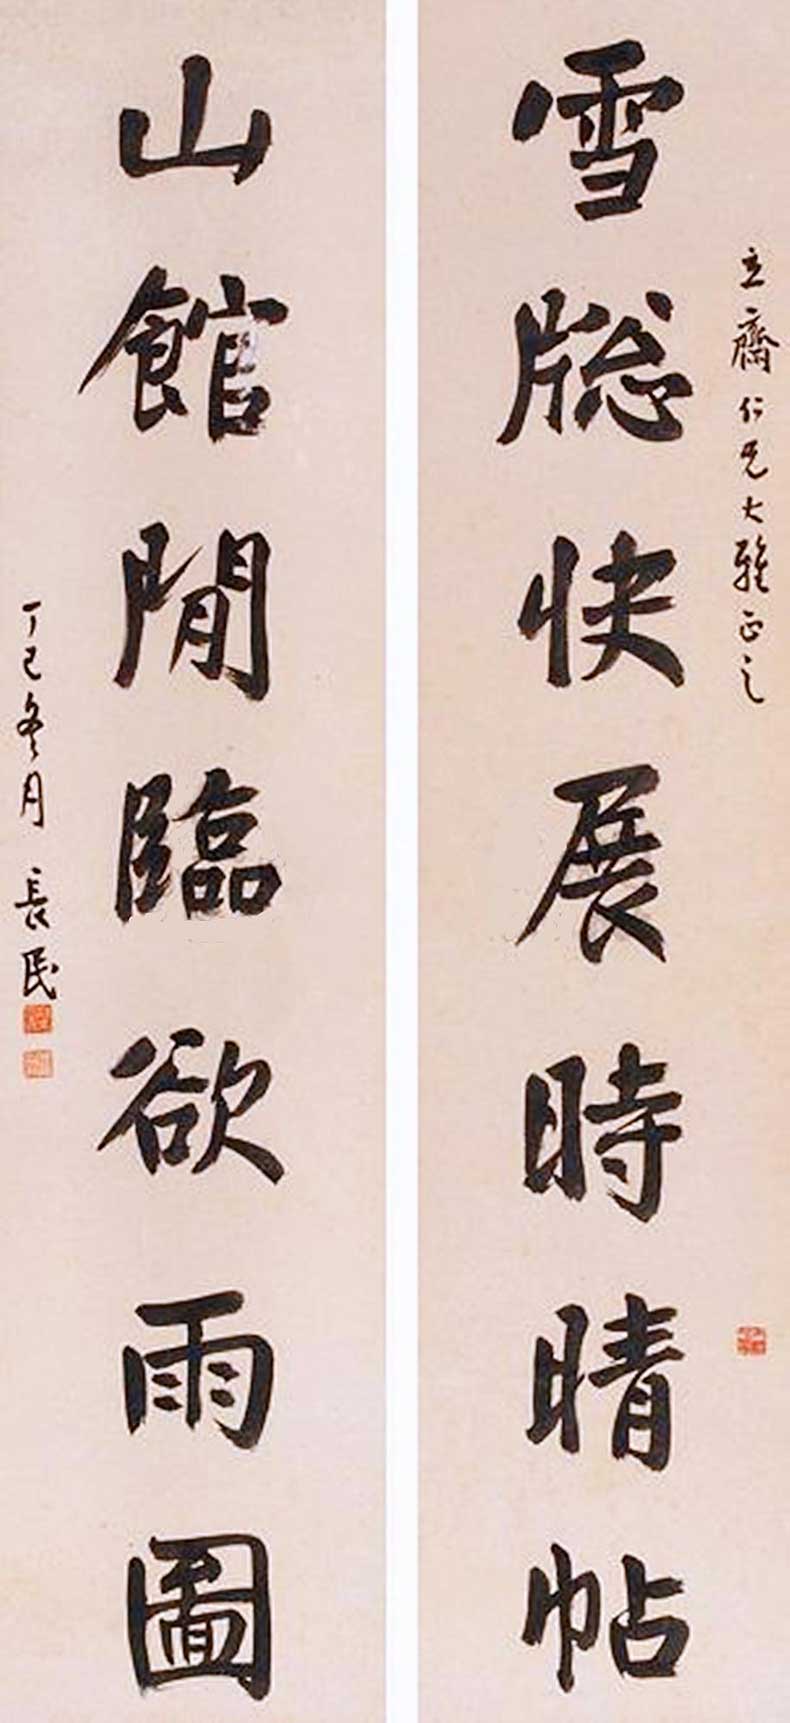 立齋仁兄大雅正之
雪牎快展時晴帖
山館閒臨欲雨圖
丁巳冬月 長民